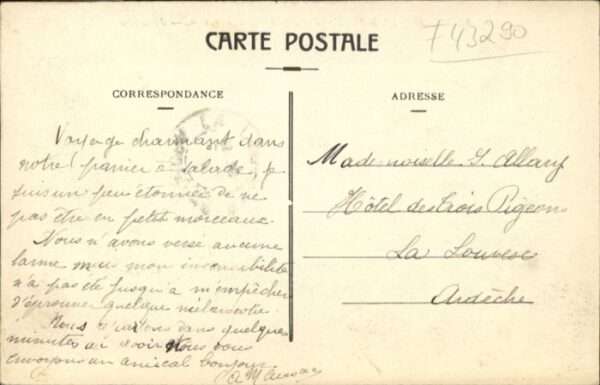 CARTE POSTALE
T43290
CORRESPONDANCE
ADRESSE
Voyage charmant dans
notre panier à salade, je
suis un peu étonnée de ne
pas être en petits morceaux.
Nous n'avons versé aucune
larme mais mon insensibilité
n'a pas été jusqu'à m'empêcher
d'éprouver quelque mélancolie
Nous dans quelques
minutes Nous vous
envoyons un amical bonjour
Mademoiselle Allary
Hôtel des trois Pigeons
La Louvesc
Ardèche